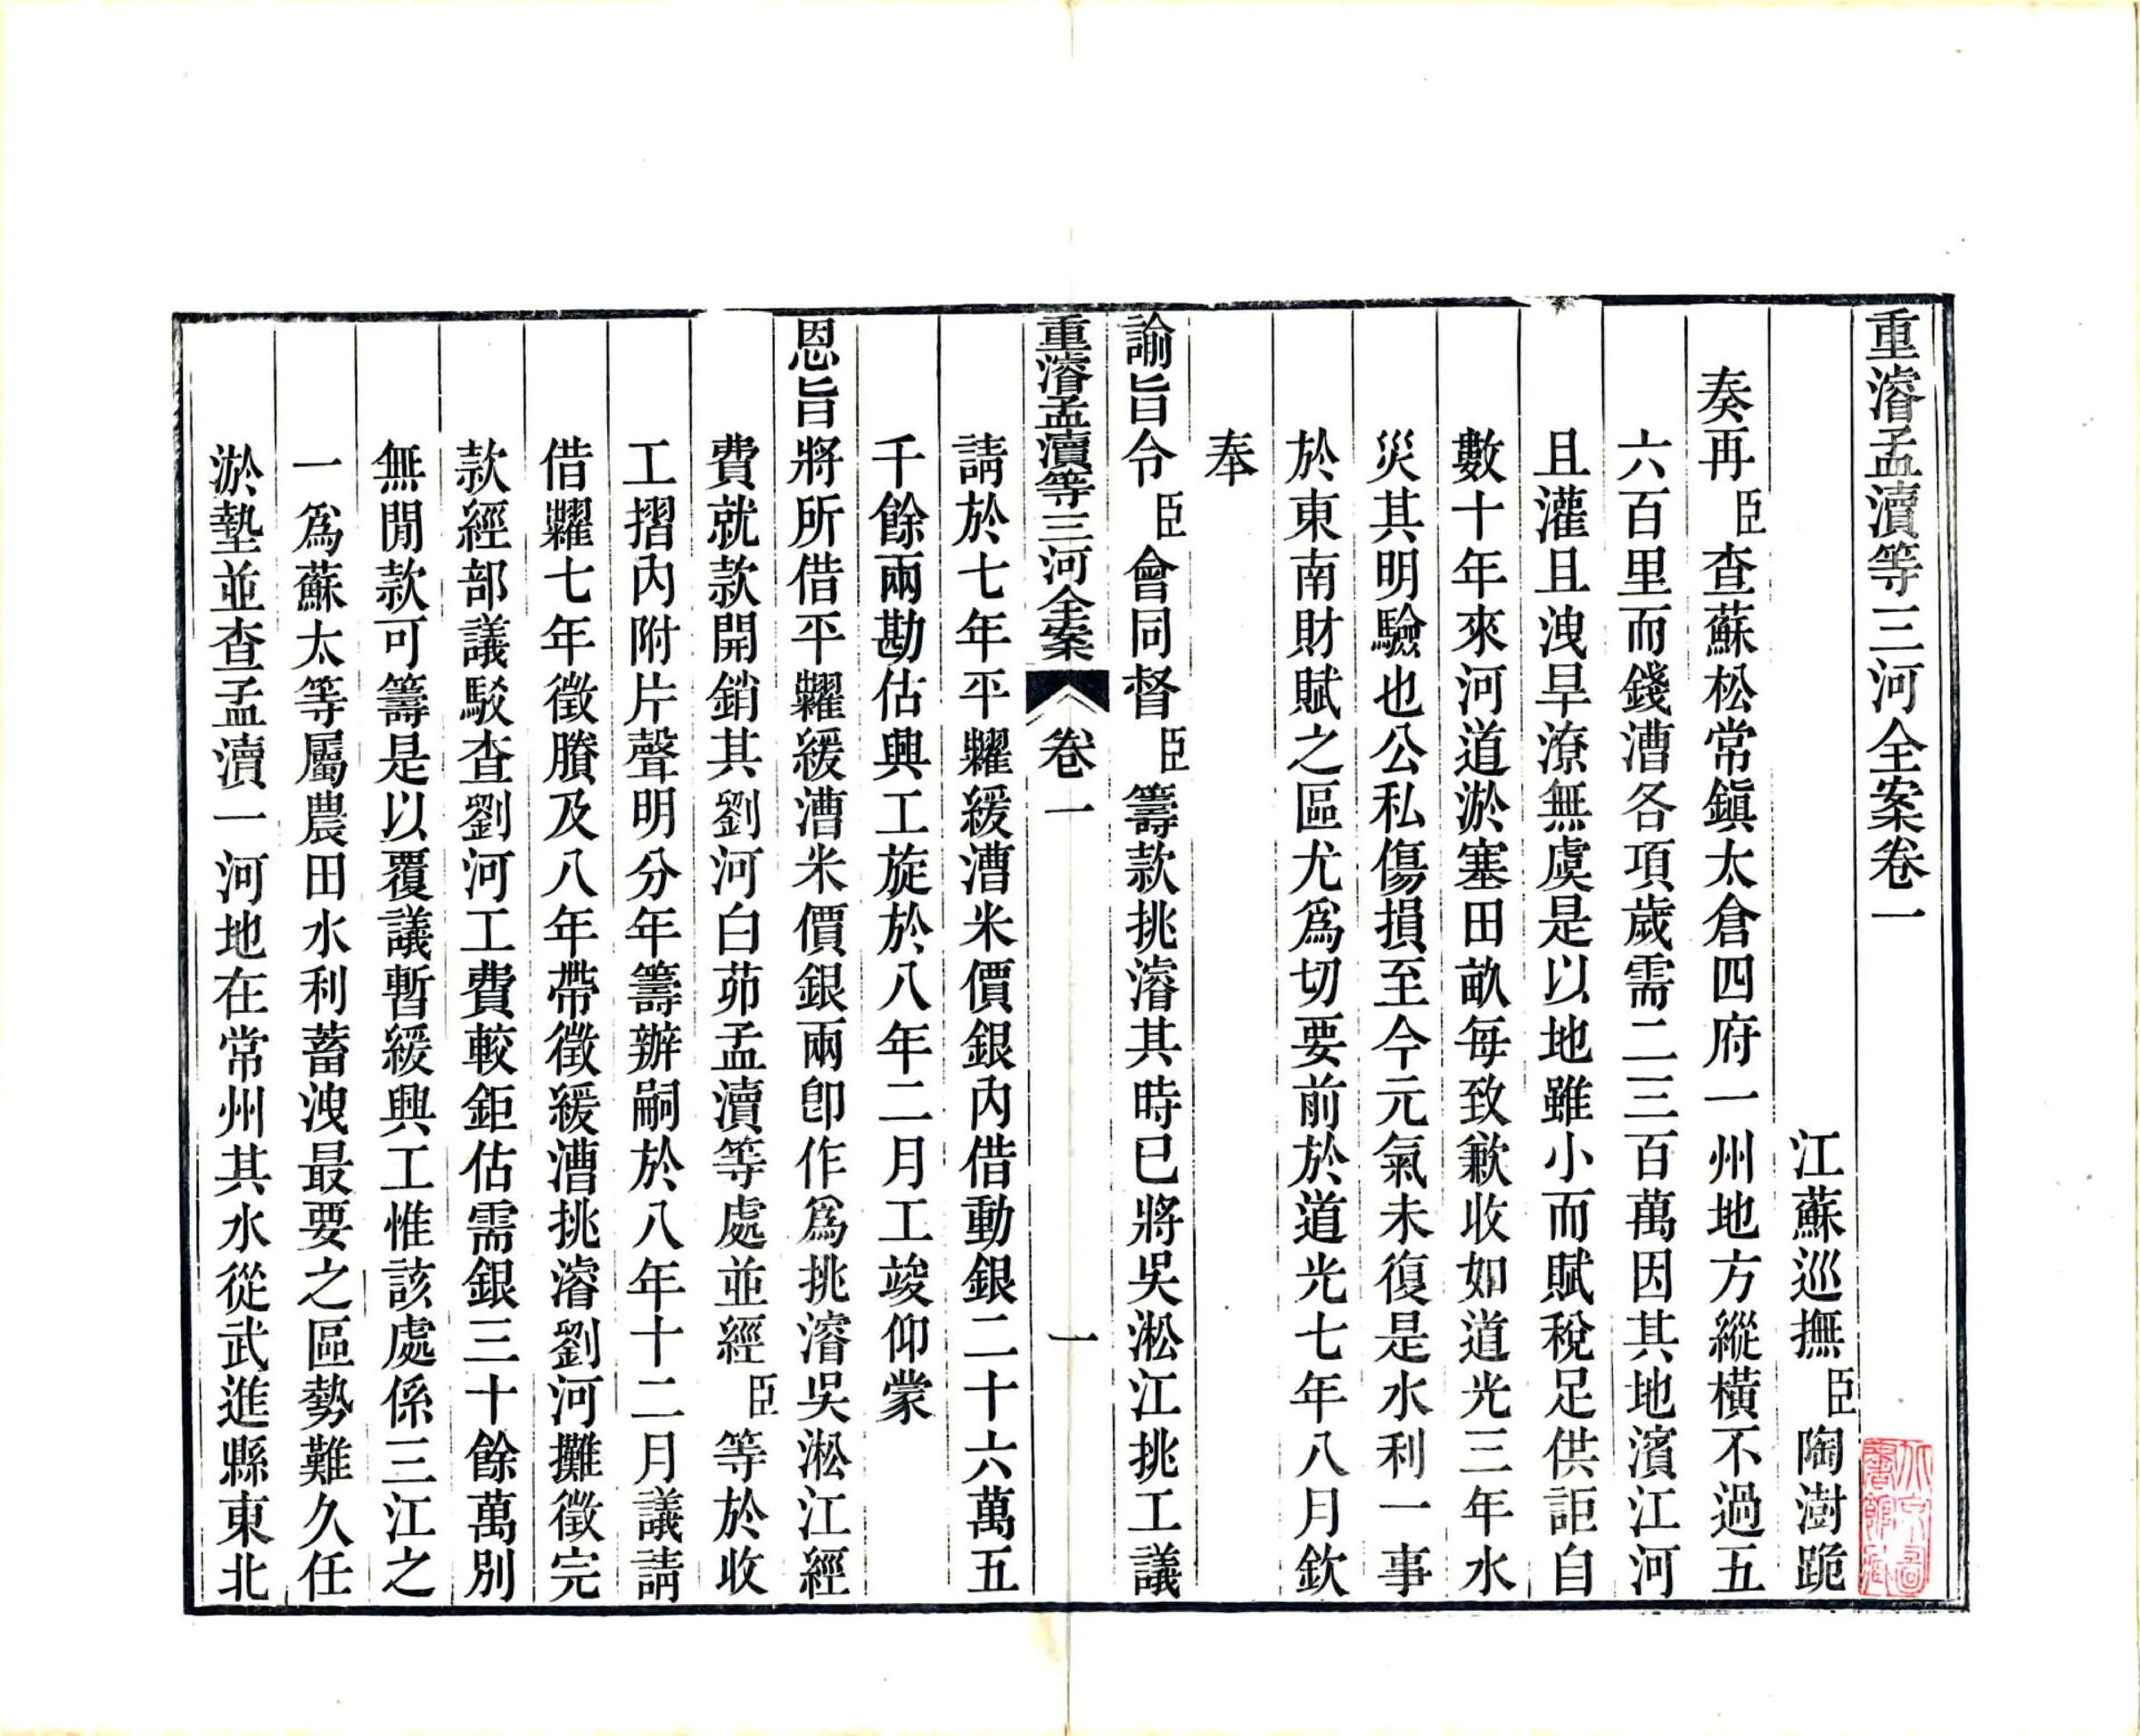 重濬孟瀆等三河全案卷一
江蘇巡撫臣陶澍跪
奏再臣查蘇松常鎮太倉四府一州地方縱橫不過五
六百里而錢漕各項歲需二三百萬因其地濱江河
且灌且洩旱潦無虞是以地雖小而賦稅足供詎自
數十年來河道淤塞田畝每致歉收如道光三年水
災其明驗也公私傷損至今元氣未復是水利一事
於東南財賦之區尤爲切要前於道光七年八月欽
奉
諭旨令臣會同督臣籌款挑濬其時已將吳淞江挑工議
重濬孟瀆等三河全案 卷一 一
請於七年平糶緩漕米價銀內借動銀二十六萬五
千餘兩勘估興工旋於八年二月工竣仰蒙
恩旨將所借平糶緩漕米價銀兩卽作爲挑濬吳淞江經
費就款開銷其劉河白茆孟瀆等處並經臣等於收
工摺內附片聲明分年籌辦嗣於八年十二月議請
借糶七年徵賸及八年帶徵緩漕挑濬劉河攤徵完
款經部議駁查劉河工費較鉅估需銀三十餘萬別
無閒款可籌是以覆議暫緩興工惟該處係三江之
一爲蘇太等屬農田水利蓄洩最要之區勢難久任
淤墊並查孟瀆一河地在常州其水從武進縣東北